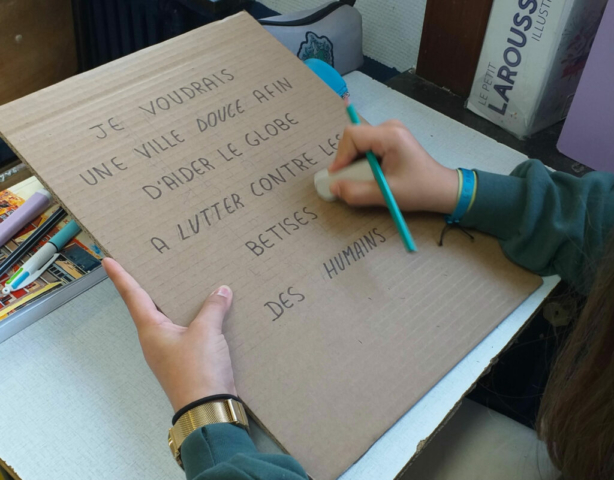 JE VOUDRAIS
UNE VILLE DOUCE AFIN
D'AIDER LE GLOBE
A LUTTER CONTRE LES
BETISES
DES HUMAINS
LE PETIT
LAROUSSE
ILLUSTR